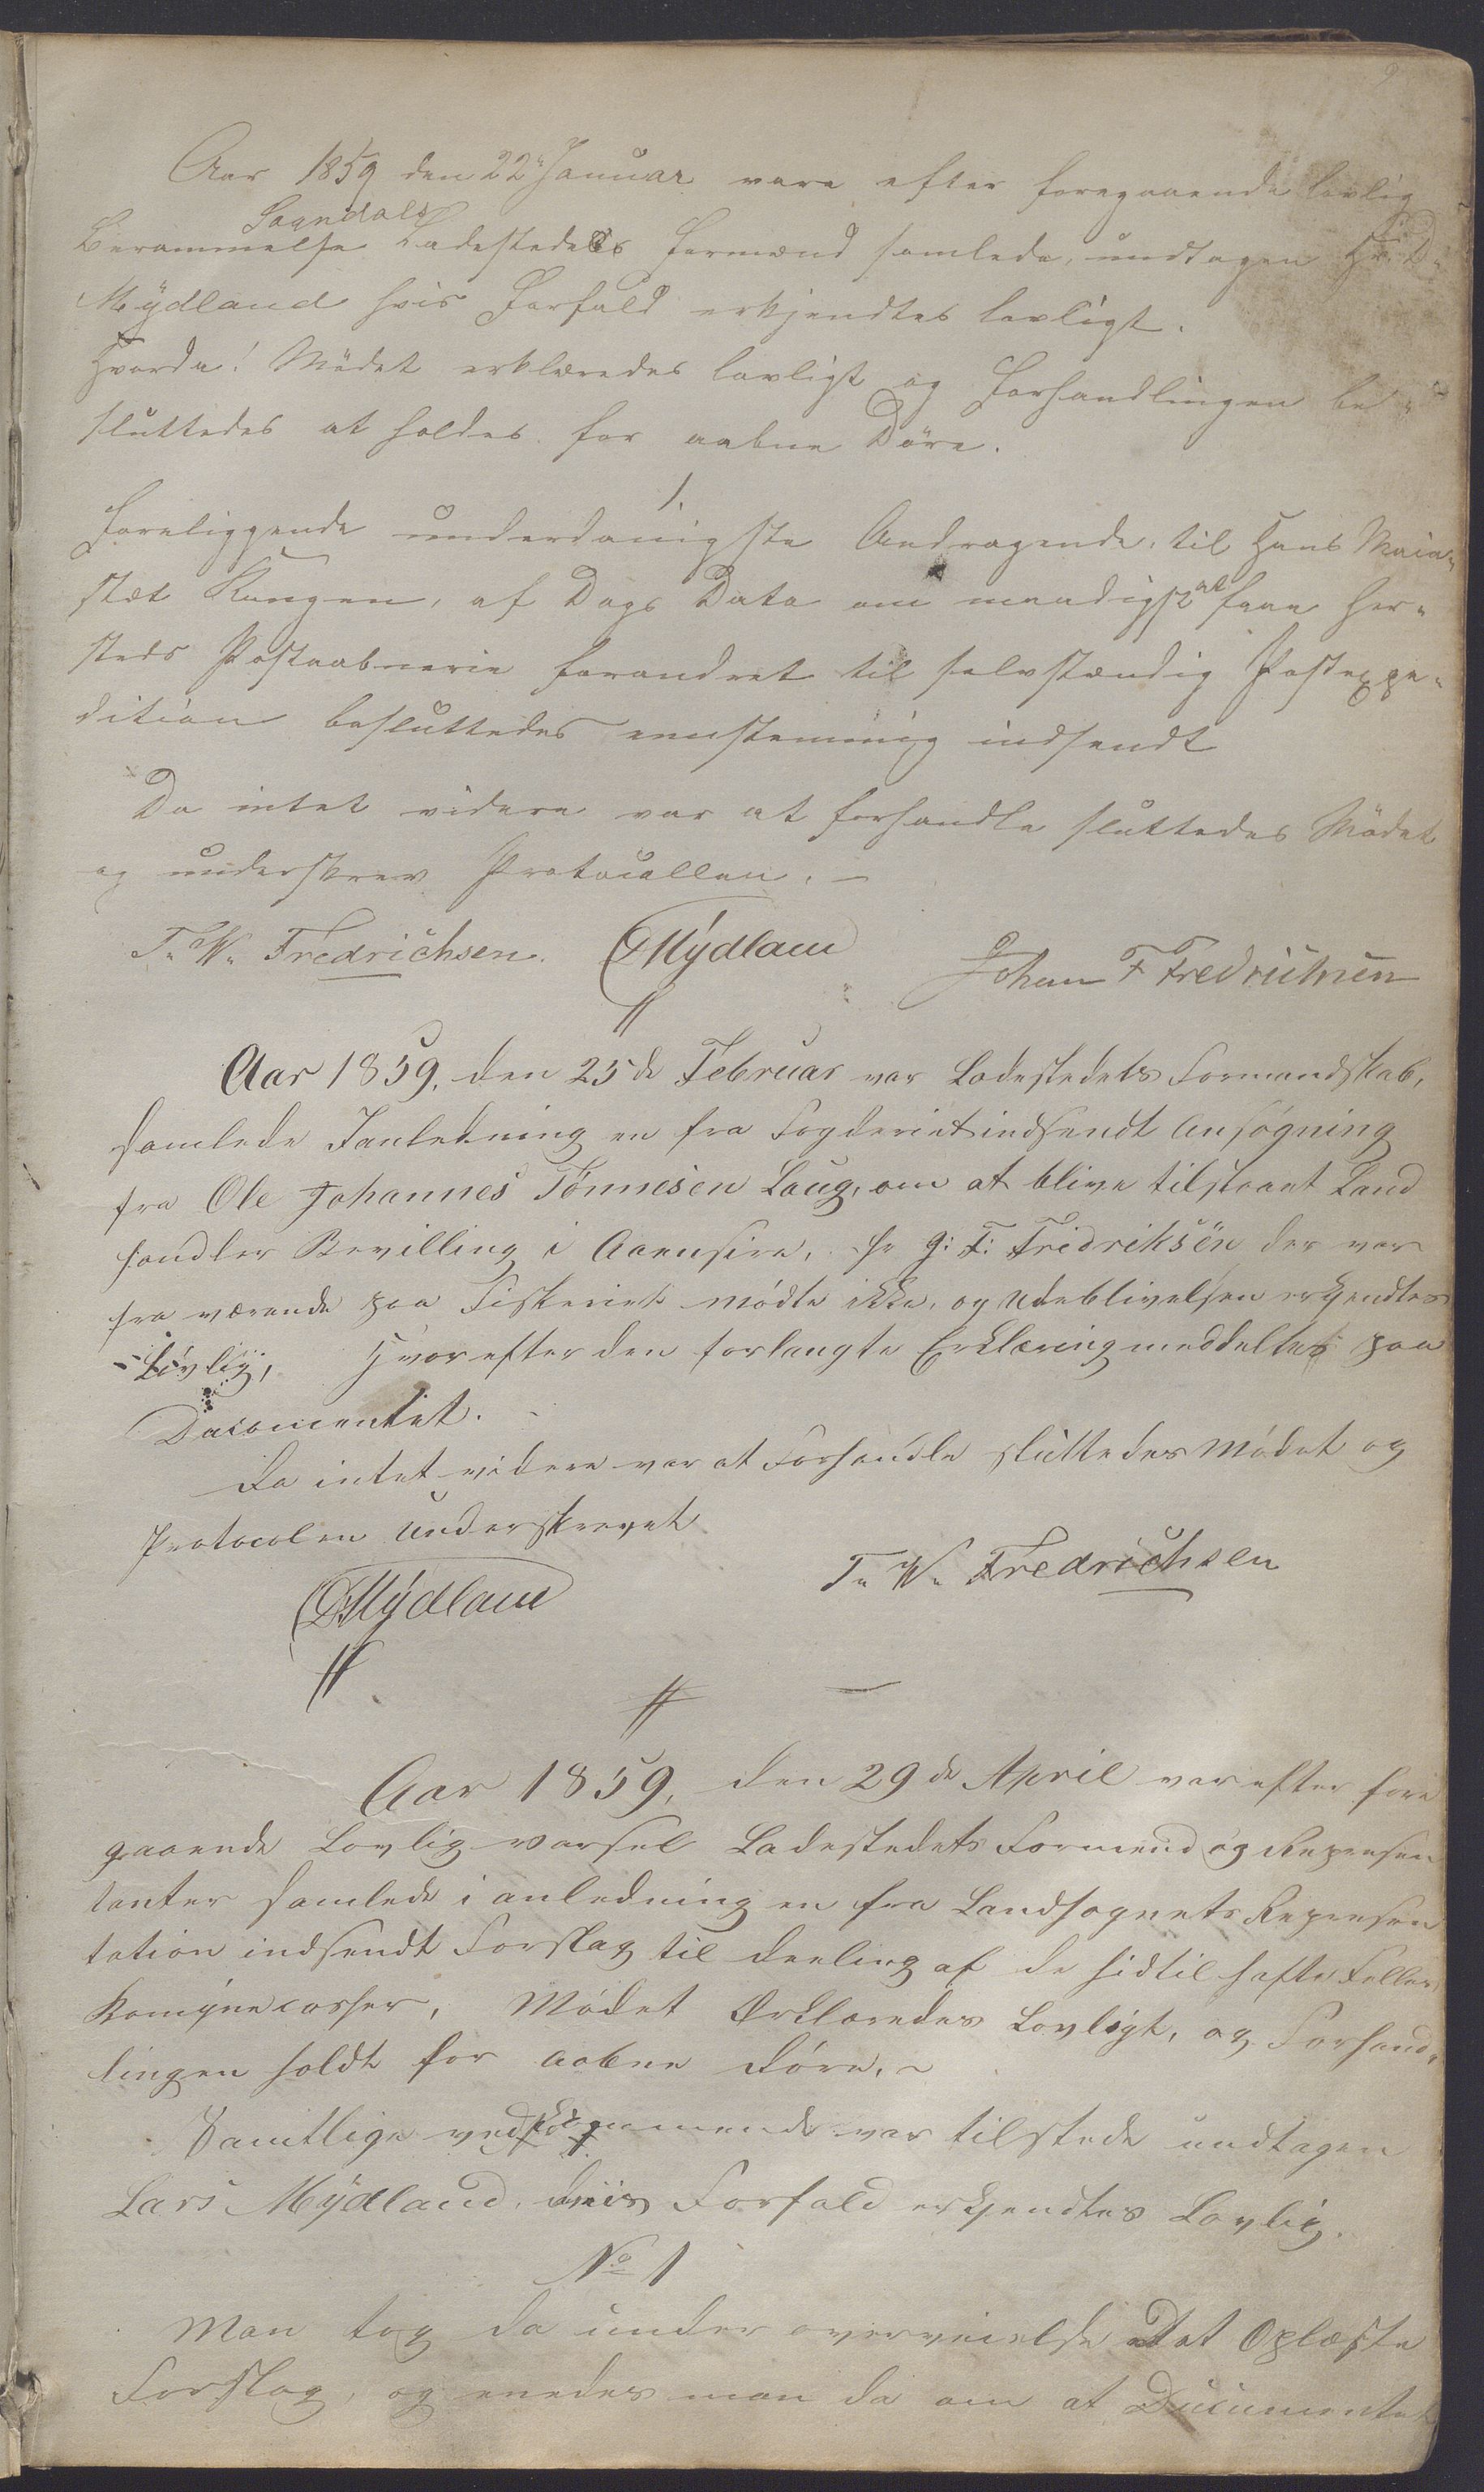 Aar 1859 den 22de Januar vare efter foregaaende lovlig
Sogndals
Berammelse Ladestedets Formænd samlede, undtagen Hr. D.
Mÿdland hvis Forfald erkjendtes lovligt.
Hvorda! Mödet erklæredes lovligt og Forhandlingen be-
sluttedes at holdes for aabne Döre.
1.
Foreliggende underdanigste Andragende, til Hans Maie-
stæt Kongen, af Dags Dato om naadigst at faae her-
steds Postaabnerie forandret til selvstændig Postexpe-
dition besluttedes eenstemmig indsendt
Da intet videre var at forhandle sluttedes Mödet
og underskrev Protocollen. –
T. W. Fredrichsen. Mÿdland Johan F Fredrichsen
Aar 1859, den 25de Februar var Ladestedets Formandskab,
samlede Ianledning en fra Fogderiet indsendt Ansøgning
fra Ole Johannes Tönnesen Laug, om at blive tilstaaet Land
handler Bevilling i Aaensire, hr J: F: Fridriksen der var
fra værende paa Fiskeriet mödte ikke, og Udeblivelsen erkjendtes
Lovlig, Hvorefter den forlangte Erklæring meddeltes paa
Documentet.
Da intet videre var at Forhandle sluttedes Mödet og
Protocolen underskrevet
Mÿdland T. W. Fredrichsen
Aar 1859, den 29de April var efter fore
gaaende Lovlig varsel Ladestedets Formend og Represen
tanter samlede i anledning en fra Landsognets Represen
tation indsendt Forslag til deeling af de hidtil hafte Felles
Komÿnecasser, Mödet Erklæredes Lovligt, og Forhand-
lingen holdt for aabne Döre, ~
Samtlige vedkommende var tilstede undtagen
Lars Mÿdland, hvis Forfald erkjendtes Lovlig.
No 1
Man tog da under overveielse Det Oplæste
Forslag, og enedes man da om at Documentet